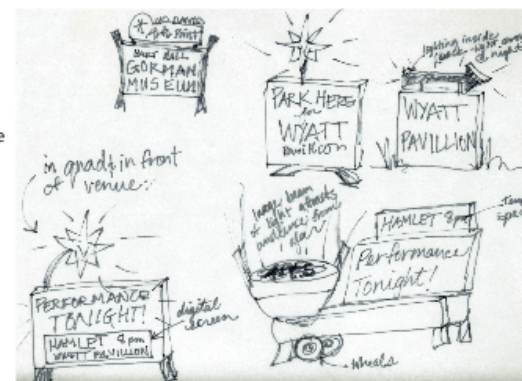 e
HART HALL
GORMAN
MUSEUM
PARK HERE
for
WYATT
PAVILLION
lighting inside
night
WYATT
PAVILLION
in quad & in front
of venue:
PERFORMANCE
TONIGHT!
HAMLET 8pm
WYATT PAVILLION
digital
screen
large beam
of light attracts
audience from
afar
ARTS
HAMLET 8pm
Performance
Tonight!
wheels